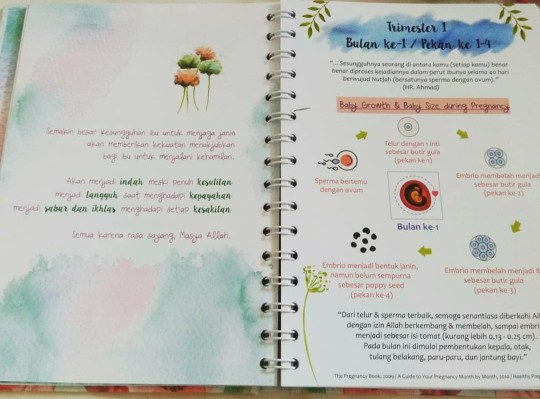 Semakin besar kesungguhan ibu untuk menjaga janin
akan memberikan kekuatan menakjubkan
bagi ibu untuk menjalani kehamilan.
Akan menjadi indah meski penuh kesulitan
menjadi tangguh saat menghadapi kepayahan
menjadi sabar dan ikhlas menghadapi setiap kesakitan
Semua karena rasa sayang, Masya Allah.
Trimester 1
Bulan ke-1 / Pekan ke 1-4
"... Sesungguhnya seorang di antara kamu (setiap kamu) benar-
benar diproses kejadiannya dalam perut ibunya selama 40 hari
berwujud Nutfah (bersatunya sperma dengan ovum)."
(HR. Ahmad)
Baby Growth & Baby Size during Pregnancy
Telur dengan 1 inti
sebesar butir gula
(pekan ke-1)
Sperma bertemu
dengan ovum
Embrio membelah menjadi
sebesar butir gula
(pekan ke 2)
Bulan ke-1
Embrio menjadi bentuk janin,
namun belum sempurna
sebesar poppy seed
(pekan ke-4)
Embrio membelah menjadi 8
sebesar butir gula
(pekan ke-3)
"Dari telur & sperma terbaik, semoga senantiasa diberkahi All
dengan izin Allah berkembang & membelah, sampai embrio
menjadi sebesar isi tomat (kurang lebih 0.13 - 0.25 cm).
Pada bulan ini dimulai pembentukan kepala, otak,
tulang belakang, paru-paru, dan jantung bayi."
The Pregnancy Book, 2009 / A Guide to Your Pregnancy Month by Month, 2016 / Healthy Preg